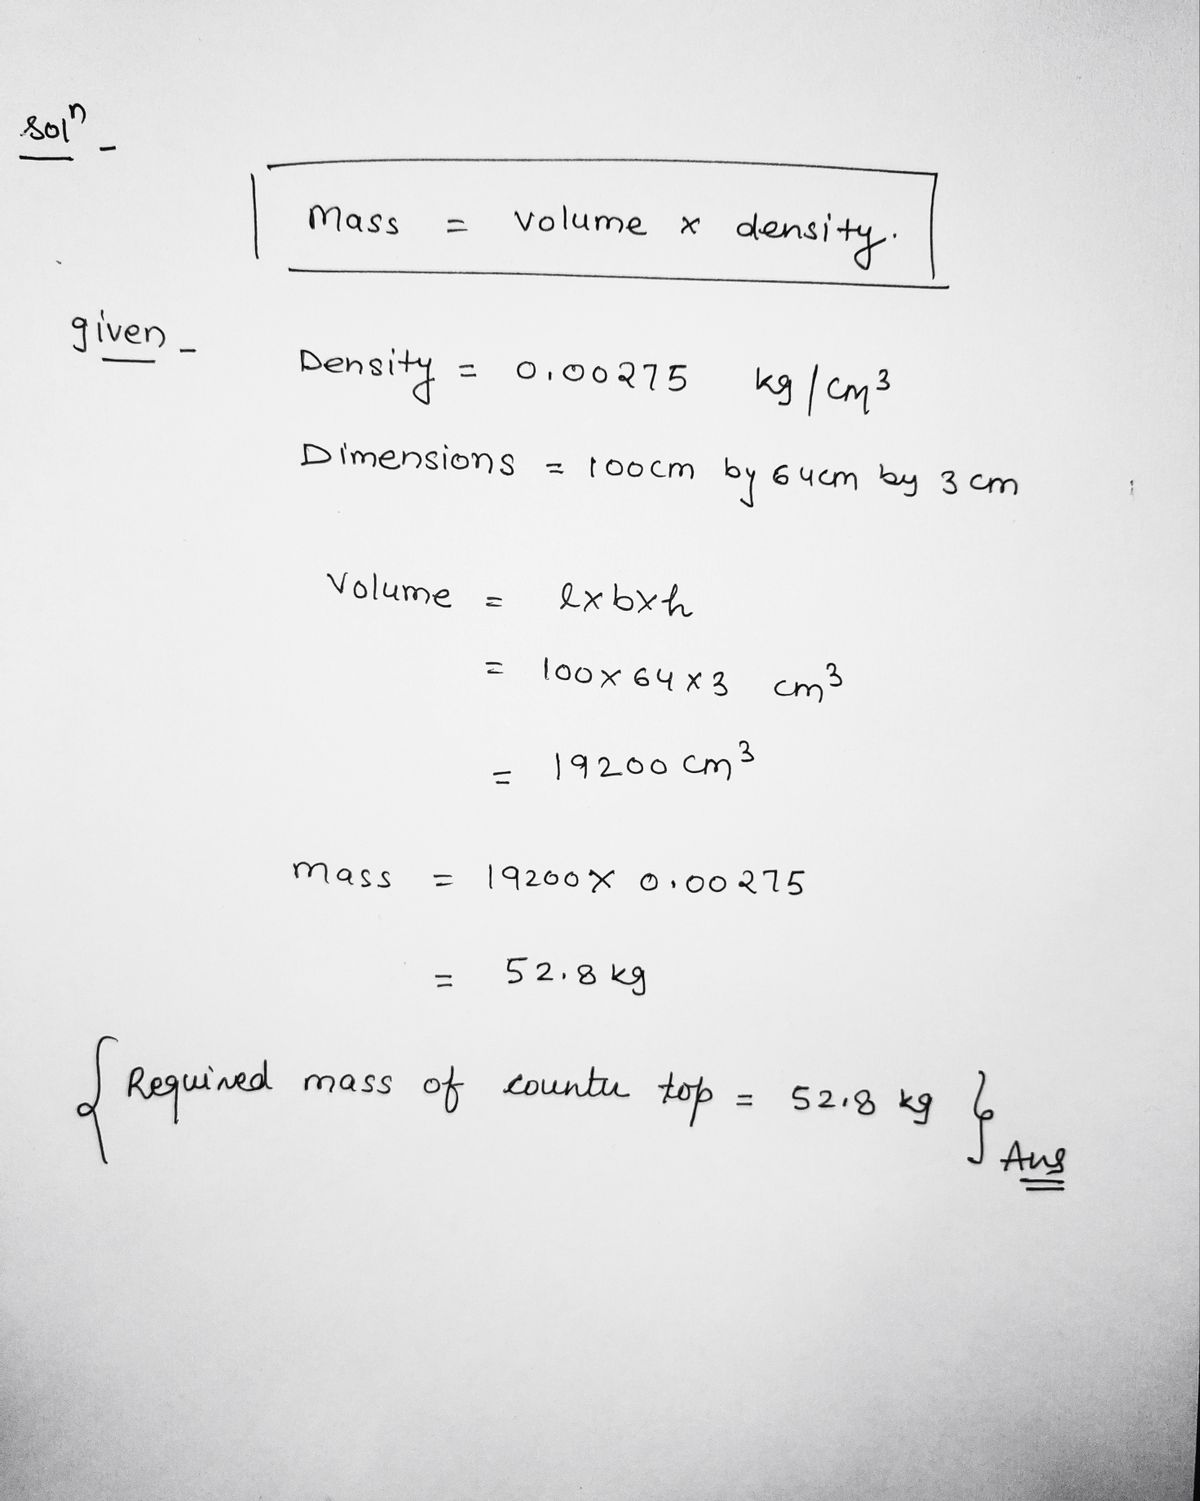 solⁿ -
Mass = volume x density.
given -
Density = 0.00275 kg/cm³
Dimensions = 100cm by 64cm by 3 cm
Volume = l x b x h
= 100 x 64 x 3 cm³
= 19200 cm³
mass = 19200 x 0.00275
= 52.8 kg
{ Required mass of counter top = 52.8 kg }
Ans